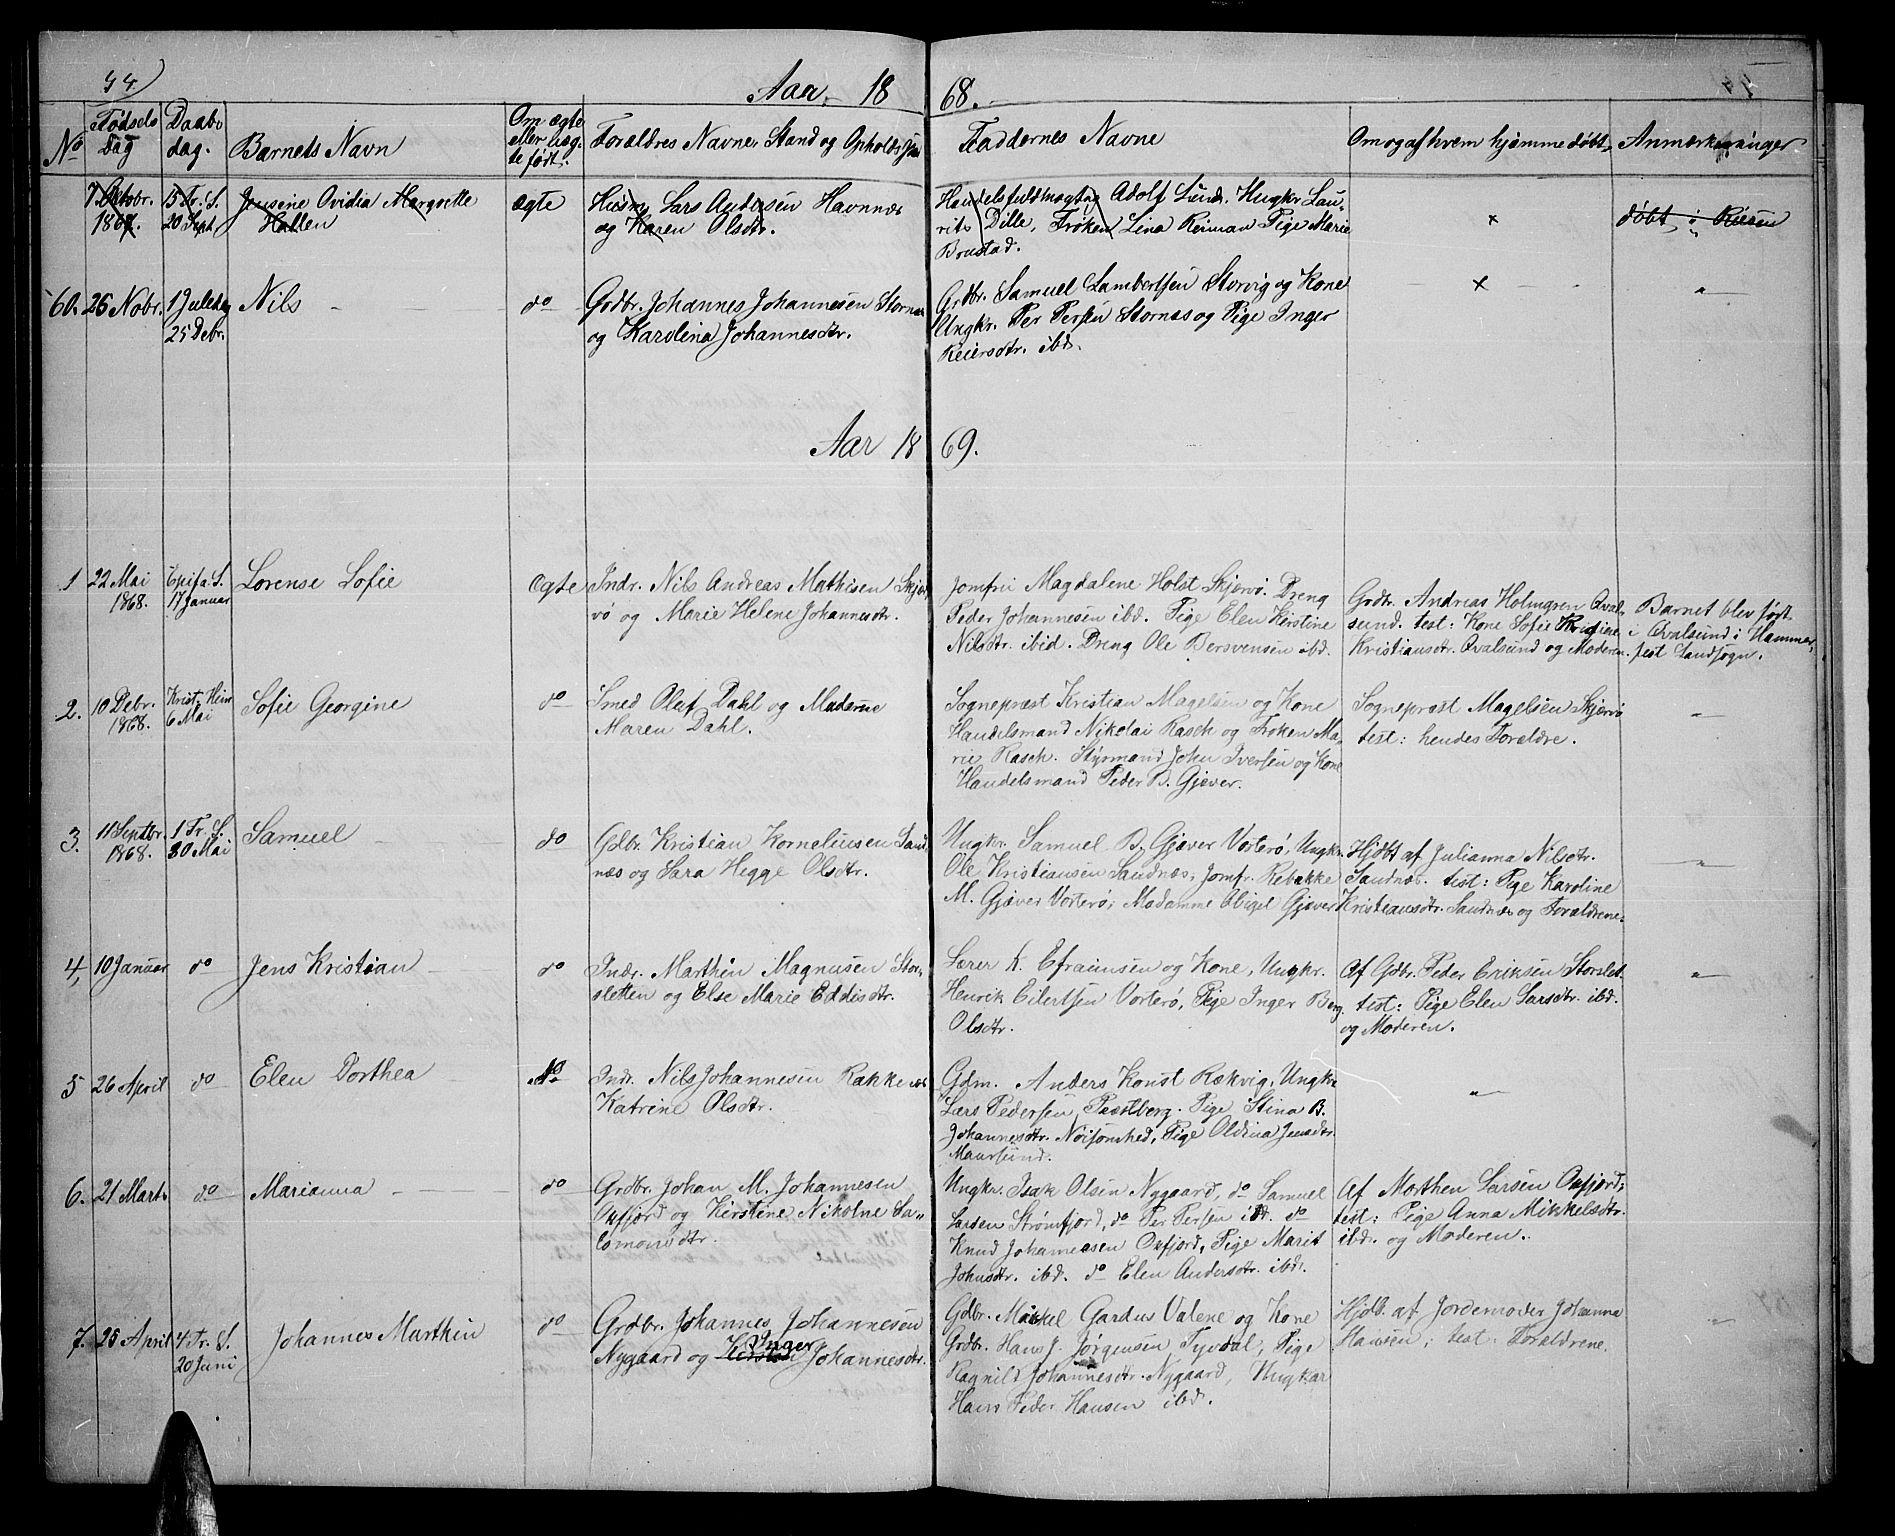 44)
Aar 18 68.
No
Fødsels Dag
Daabs dag.
Barnets Navn
Om ægte eller uæg- te født.
Forældres Navne, Stand og Opholds
Faddernes Navne
Om og af hvem hjemmedøbt
Anmærkninger
7. Oktbr. 1867.
15 Tr. S. 20 Sept.
Jensine Ovidia Margrethe
Hallen
ægte
Husm Lars Andersen Havnnæs
og Karen Olsdtr.
Handelsfuldmægtig Adolf Lund, Ungkr Lau-
rits Dille, Frøken Lina Reiman Pige Marie
Brustad.
×
døbt i
60.
26 Nobr.
1 Juledag
25 Debr.
Nils
do
Grdbr. Johannes Johannesen Stornæs
og Karolina Johannesdtr.
Grdbr. Samuel Lambertsen Storvig og Kone
Ungkr. Per Persen Stornæs og Pige Inger
Reiersdtr. ibd.
×
"
Aar 18 69.
1
22 Mai
1868.
Epifa. S.
17 Januar
Lorense Sofie
Ægte
Indr. Nils Andreas Mathisen Skjær-
vø og Marie Helene Johannesdtr.
Jomfru Magdalene Holst Skjervø. Dreng
Peder Johannesen ibd. Pige Elen Kirstine
Nilsdtr. ibid. Dreng Ole Bersvensen ibd.
Grdbr. Andreas Holmgren Qval-
sund. test: Kone Sofie
Kristiansdtr. Qvalsund og Moderen.
Barnet blev født
i Qvalsund i Hammer-
fest Landsogn.
2.
10 Debr.
1868.
Krist. Him
6 Mai
Sofie Georgine
do
Smed Oluf Dahl og Madame
Maren Dahl.
Sognepræst Kristian Magelsen og Kone
Handelsmand Nikolai Rasch og Frøken Ma-
rie Rasch. Styrmand John Iversen og Kone
Handelsmand Peder B. Gjæver.
Sogneprest Magelsen Skjervø
test: hendes Forældre.
"
3.
11 Septbr.
1868.
1 Tr. S.
30 Mai
Samuel
do
Gdbr. Kristian Korneliusen Sand-
næs og Sara Hegge Olsdtr.
Ungkr. Samuel B. Gjæver Vorterø, Ungkr.
Ole Kristiansen Sandnæs, Jomfr. Rebekke
M. Gjæver Vorterø, Madamme Abigel Gjæver
Hjdbt af Julianna Nilsdtr.
Sandnæs. test: Pige Karoline
Kristiansdtr. Sandnæs og Forældrene.
"
4,
10 Januar
do
Jens Kristian
do
Indr. Marthin Magnusen Stor-
sletten og Else Marie Eddisdtr.
Lærer K. Efraimsen og Kone, Ungkr.
Henrik Eilertsen Vorterø, Pige Inger Berg
Olsdtr.
Af Gdbr. Peder Eriksen Storslet.
test: Pige Elen Larsdtr. ibd.
og Moderen.
"
5
26 April
do
Elen Dorthea
do
Indr. Nils Johannesen Rakkenæs
Katrine Olsdtr.
Gdm. Anders Konst Rækvig, Ungkr
Lars Pedersen, Præstberg. Pige Stina B.
Johannesdtr. Nøisomhed, Pige Oldina Jensdtr.
Maursund.
"
6.
21 Marts
do
Marianna
do
Grdbr. Johan M. Johannesen
Oxfjord og Kirstine Nikoline Sa-
lomonsdtr.
Ungkr. Isak Olsen Nygaard, do Samuel
Larsen Strømfjord, do Per Persen ibd. do
Knud Johannesen Oxfjord, Pige Marit
Johnsdtr. ibd. do Elen Andersdtr. ibd.
Af Morthen Larsen Oxfjord;
test: Pige Anna Mikkelsdtr.
ibd. og Moderen.
7.
25 April
4 Tr. S.
20 Juni
Johannes Marthin
do
Grdbr. Johannes Johannesen
Inger
Nygaard og Kirsten Johannesdtr.
Gdbr. Mikkel Gardus Valene og Kone
Grdbr. Hans J. Jørgensen Tyvdal, Pige
Ragnild Johannesdtr. Nygaard, Ungkar
Hans Peder Hansen ibd.
Hjdb. af Jordemoder Johanna
Hansen; test: Forældrene.
"